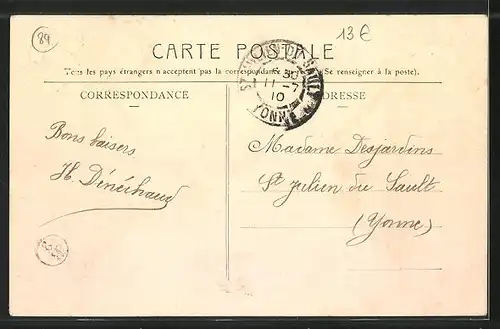 89
13€
CARTE POSTALE
Tous les pays étrangers n'acceptent pas la correspondance (Se renseigner à la poste).
CORRESPONDANCE
ADRESSE
ST JULIEN DU SAULT
8 30
11 - 7
10
YONNE
Bons baisers
H. Dénéchaud
Madame Desjardins
St Julien du Sault
(Yonne)